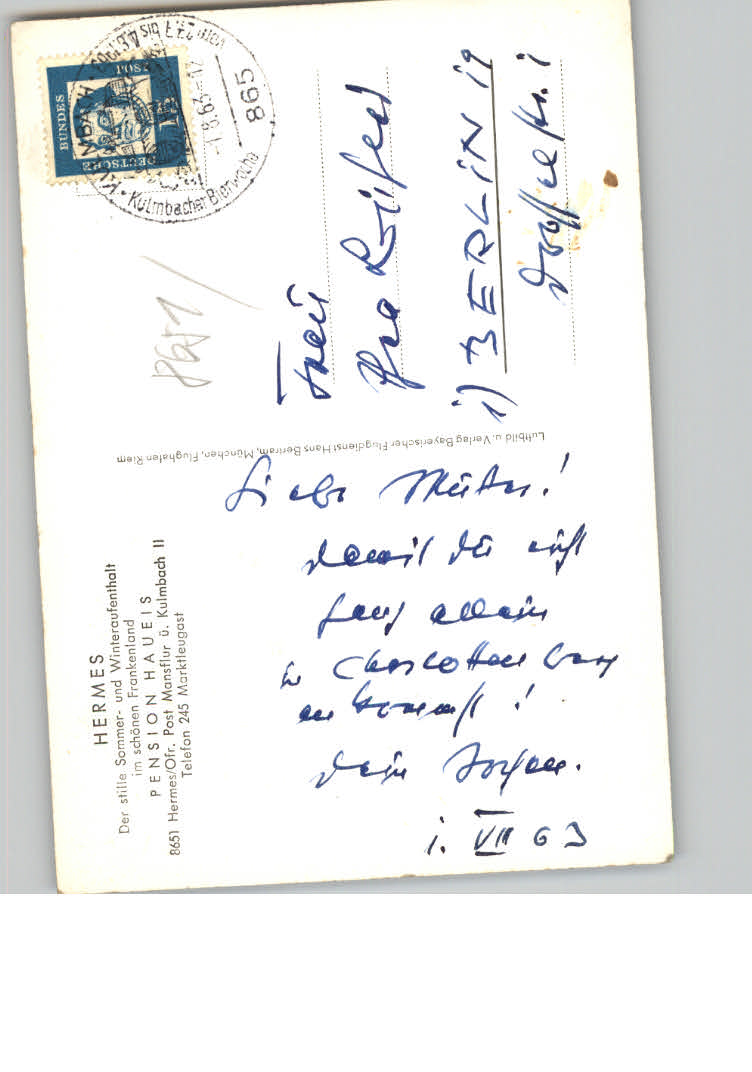 HERMES
Der stille Sommer- und Winteraufenthalt
im schönen Frankenland
PENSION HAUEIS
8651 Hermes/Ofr. Post Mansflur ü. Kulmbach II
Telefon 245 Marktleugast
Liebe Mutter!
damit du nicht
ganz allein
in Charlottenburg
ankommst!
Dein
1. VII 63
Luftbild u. Verlag Bayerischer Flugdienst Hans Bertram, München, Flughafen Riem
DEUTSCHE
BUNDES
POST
15
KULMBACH
865
-1.8.63-12
Kulmbacher Bierwoche
8651/
Frau
1) BERLIN 19